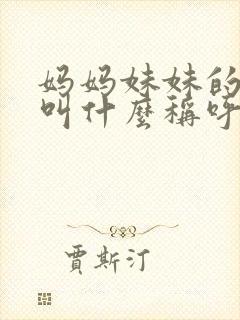 妈妈妹妹的
叫什麼稱呼
賈斯汀